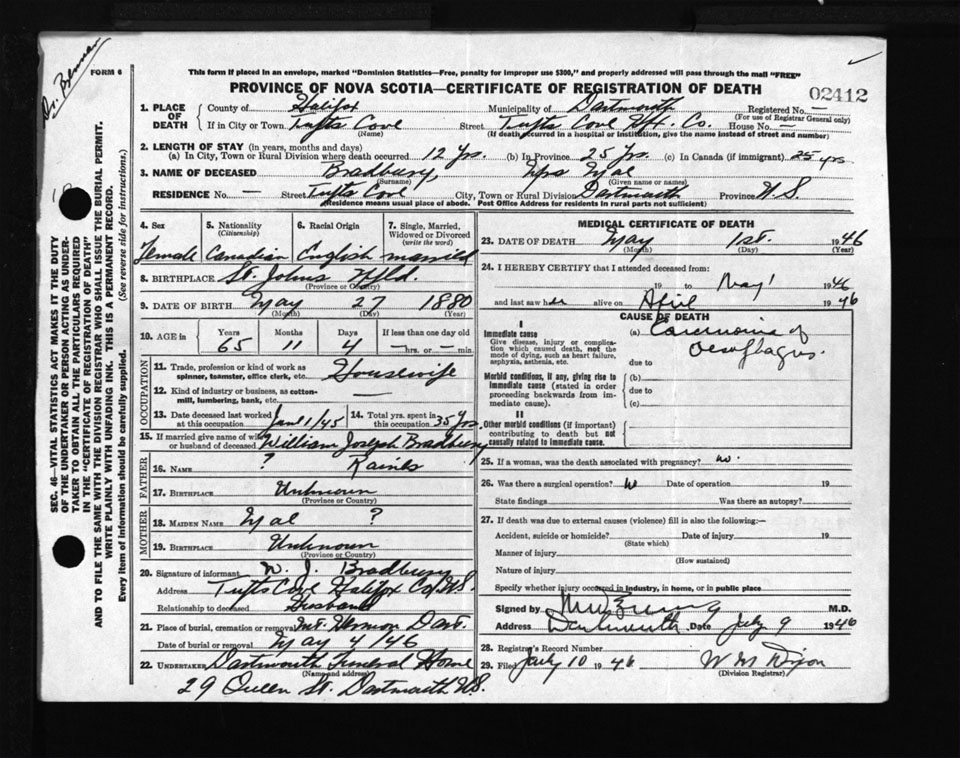 Dr. Brennan
FORM 6
This form if placed in an envelope, marked "Dominion Statistics—Free, penalty for improper use $300," and properly addressed will pass through the mail "FREE"
PROVINCE OF NOVA SCOTIA—CERTIFICATE OF REGISTRATION OF DEATH
02412
1. PLACE OF DEATH
County of Halifax Municipality of Dartmouth Registered No. —
(For use of Registrar General only)
If in City or Town Tufts Cove Street Tufts Cove Hfx. Co. House No. —
(Name) (If death occurred in a hospital or institution, give the name instead of street and number)
2. LENGTH OF STAY (in years, months and days)
(a) In City, Town or Rural Division where death occurred 12 Yrs. (b) In Province 25 Yrs. (c) In Canada (if immigrant) 25 yrs.
3. NAME OF DECEASED Bradbury, Mrs
(Surname) (Given name or names)
RESIDENCE No. — Street Tufts Cove City, Town or Rural Division Dartmouth Province N.S.
(Residence means usual place of abode. Post Office Address for residents in rural parts not sufficient)
SEC. 46—VITAL STATISTICS ACT MAKES IT THE DUTY
OF THE UNDERTAKER OR PERSON ACTING AS UNDER-
TAKER TO OBTAIN ALL THE PARTICULARS REQUIRED
IN THE "CERTIFICATE OF REGISTRATION OF DEATH"
AND TO FILE THE SAME WITH THE DIVISION REGISTRAR WHO SHALL ISSUE THE BURIAL PERMIT.
WRITE PLAINLY WITH UNFADING INK. THIS IS A PERMANENT RECORD.
Every item of information should be carefully supplied. (See reverse side for instructions.)
4. Sex 5. Nationality 6. Racial Origin 7. Single, Married,
(Citizenship) Widowed or Divorced
(write the word)
Female Canadian English married
8. BIRTHPLACE St. Johns Nfld.
(Province or Country)
9. DATE OF BIRTH May 27 1880
(Month) (Day) (Year)
10. AGE in Years Months Days If less than one day old
65 11 4 —hrs. or —min.
OCCUPATION
11. Trade, profession or kind of work as
spinner, teamster, office clerk, etc. Housewife
12. Kind of industry or business, as cotton-
mill, lumbering, bank, etc. —
13. Date deceased last worked 14. Total yrs. spent in
at this occupation Jan 1/45 this occupation 35 yrs.
15. If married give name of wife
or husband of deceased William Joseph Bradbury
FATHER
16. NAME ? Raines
17. BIRTHPLACE Unknown
(Province or Country)
MOTHER
18. MAIDEN NAME ?
19. BIRTHPLACE Unknown
(Province or Country)
20. Signature of informant W. J. Bradbury
Address Tufts Cove Halifax Co. N.S.
Relationship to deceased Husband
21. Place of burial, cremation or removal Mt. Hermon Dart.
Date of burial or removal May 4/46
22. UNDERTAKER Dartmouth Funeral Home
(Name and address)
29 Queen St. Dartmouth N.S.
MEDICAL CERTIFICATE OF DEATH
23. DATE OF DEATH May 1st. 1946
(Month) (Day) (Year)
24. I HEREBY CERTIFY that I attended deceased from:
19 to May 1 1946
and last saw her alive on April 1946
CAUSE OF DEATH
I
Immediate cause (a) Carcinoma of
Give disease, injury or complica-
tion which caused death, not the
mode of dying, such as heart failure,
asphyxia, asthenia, etc.
Oesophagus.
due to
Morbid conditions, if any, giving rise to
immediate cause (stated in order
proceeding backwards from im-
mediate cause).
(b)
due to
(c)
II
Other morbid conditions (if important)
contributing to death but not
causally related to immediate cause.
25. If a woman, was the death associated with pregnancy? no.
26. Was there a surgical operation? No Date of operation 19
State findings Was there an autopsy?
27. If death was due to external causes (violence) fill in also the following:—
Accident, suicide or homicide? Date of injury 19
(State which)
Manner of injury
(How sustained)
Nature of injury
Specify whether injury occurred in industry, in home, or in public place
Signed by M.D.
Address Dartmouth Date July 9 1946
28. Registrar's Record Number
29. Filed July 10 1946 W M Dixon
(Division Registrar)